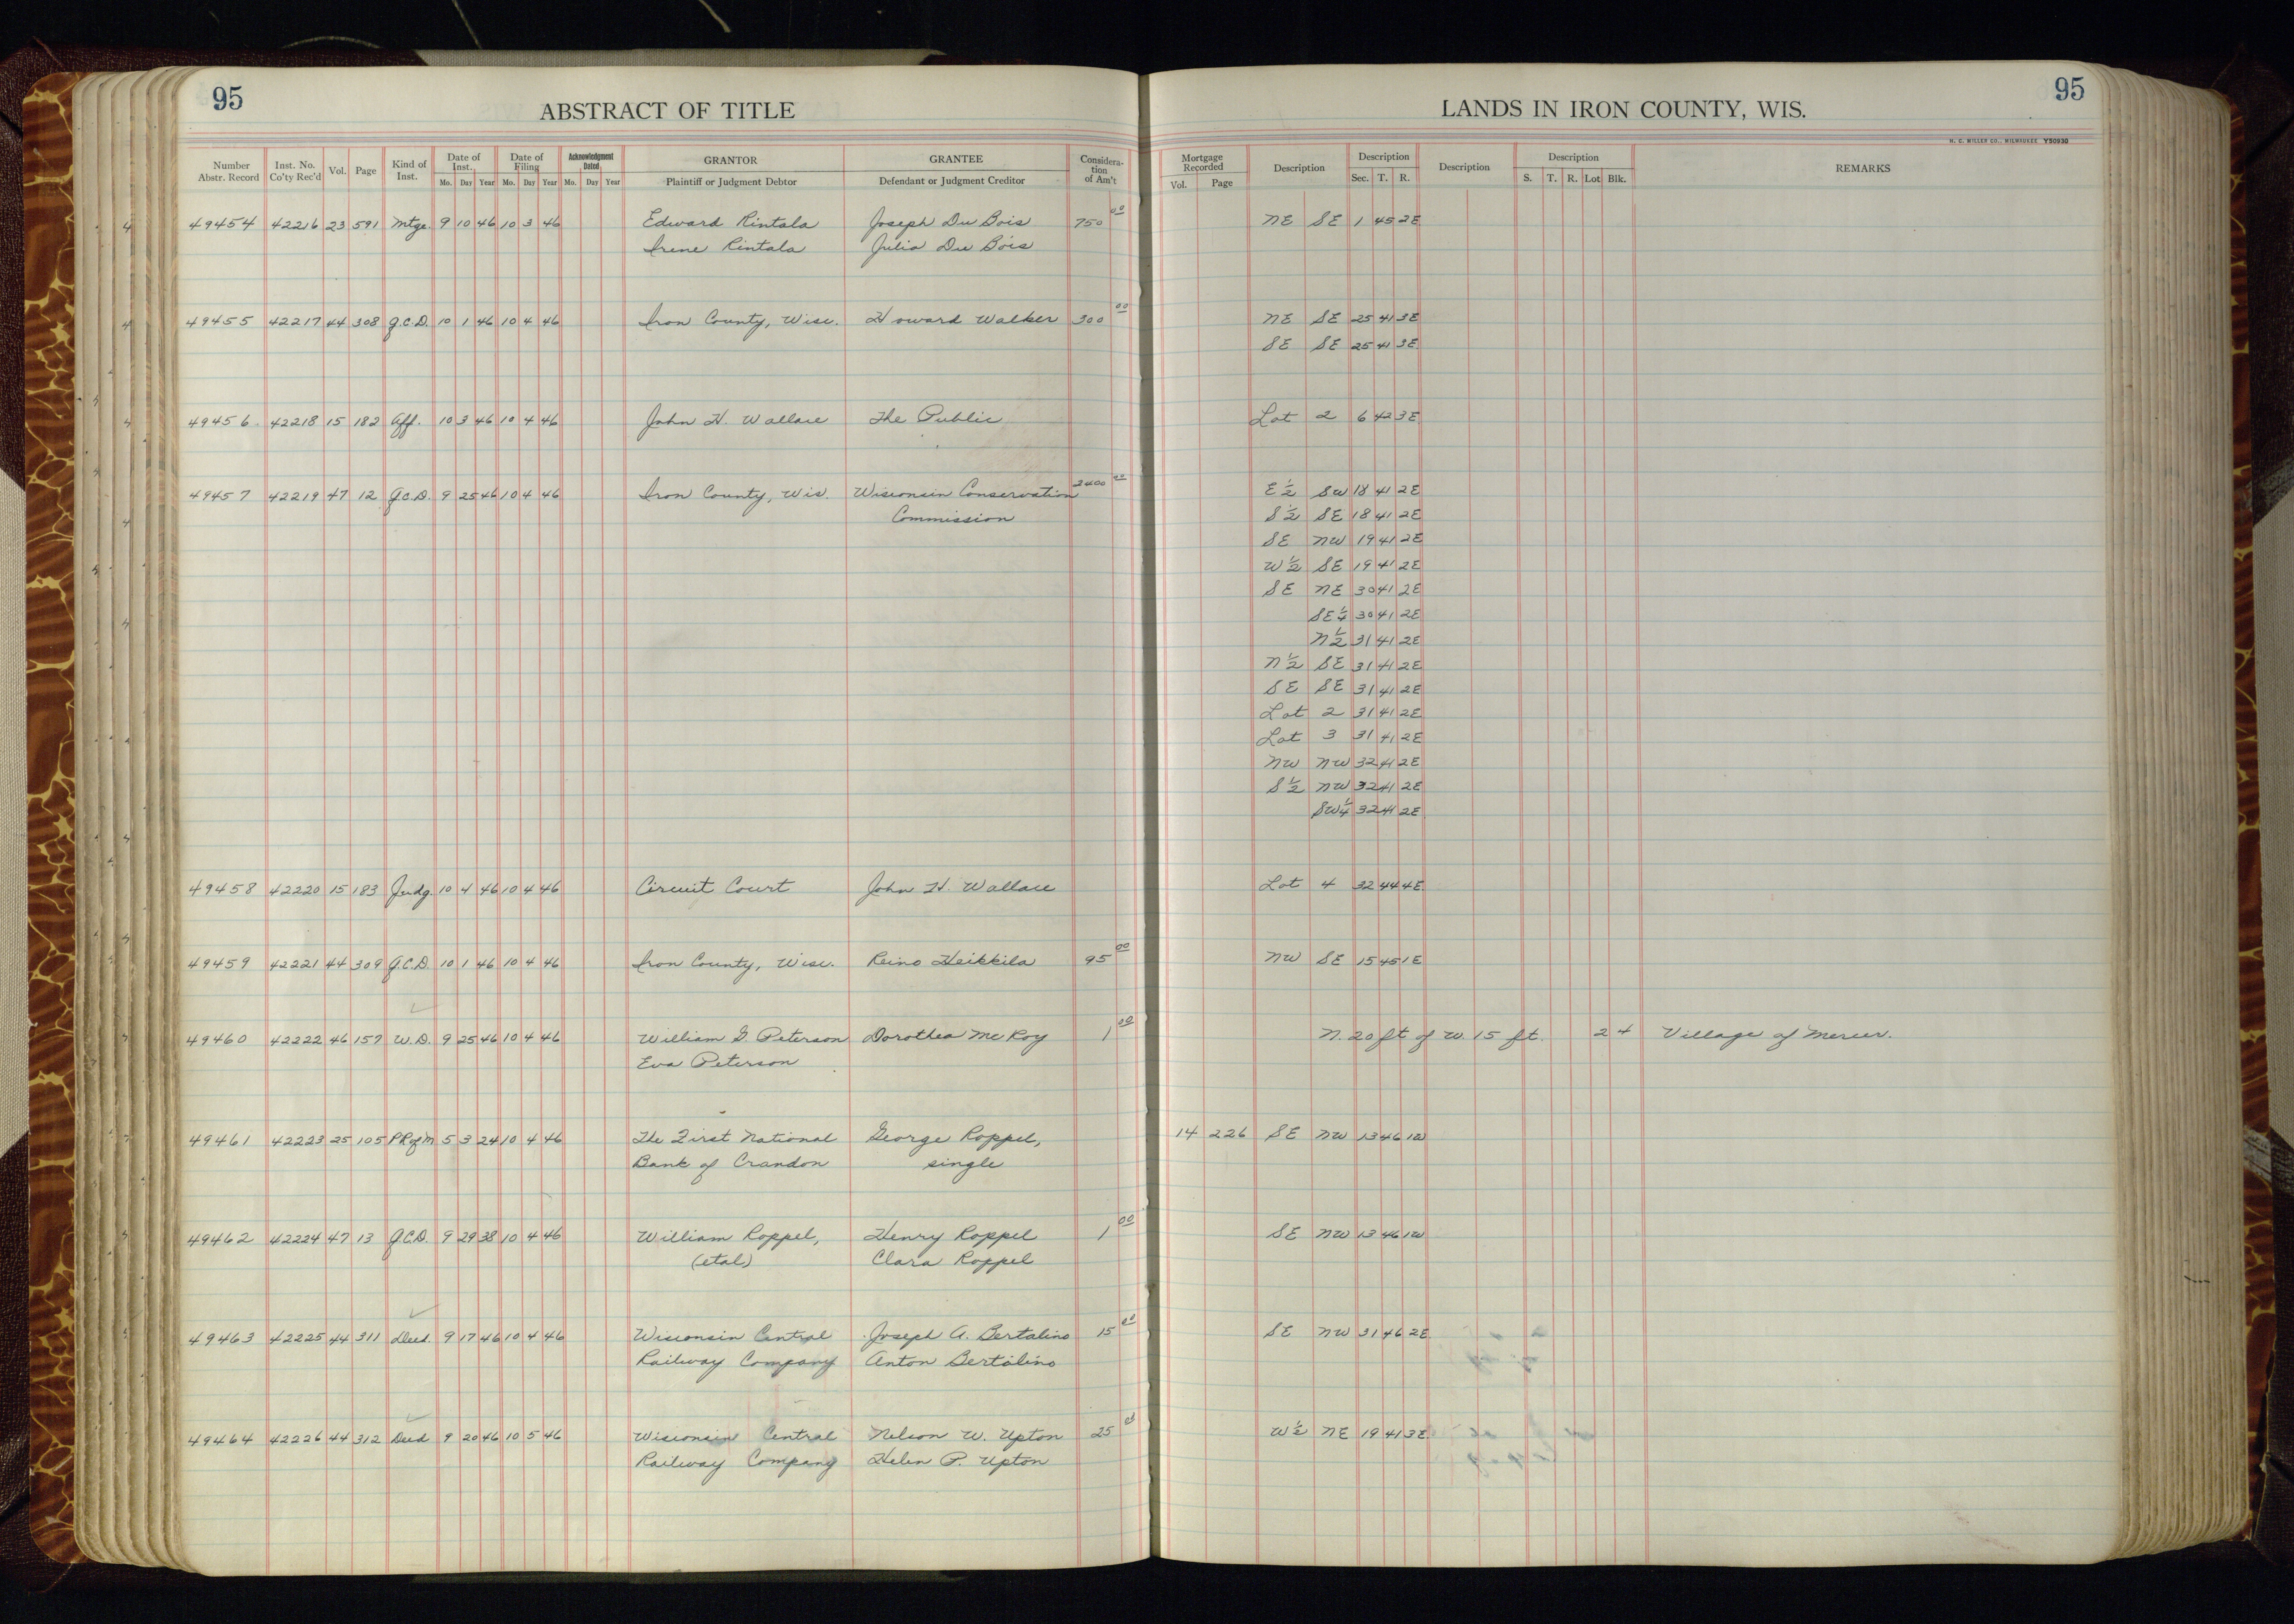 95
ABSTRACT OF TITLE
LANDS IN IRON COUNTY, WIS.
95
H. C. MILLER CO., MILWAUKEE Y50930
Number Abstr. Record Inst. No. Co'ty Rec'd Vol. Page Kind of Inst. Date of Inst. Mo. Day Year Date of Filing Mo. Day Year Acknowledgment Dated Mo. Day Year GRANTOR Plaintiff or Judgment Debtor GRANTEE Defendant or Judgment Creditor Considera-tion of Am't Mortgage Recorded Vol. Page Description Description Sec. T. R. Description Description S. T. R. Lot Blk. REMARKS
49454 42216 23 591 Mtge 9 10 46 10 3 46 Edward Rintala Joseph Du Bois 750 00 NE SE 1 45 2E
Irene Rintala Julia Du Bois
49455 42217 44 308 Q.C.D. 10 1 46 10 4 46 Iron County, Wisc. Howard Walker 300 00 NE SE 25 41 3E
SE SE 25 41 3E
49456 42218 15 182 Aff. 10 3 46 10 4 46 John H. Wallace The Public Lot 2 6 42 3E
49457 42219 47 12 Q.C.D. 9 25 46 10 4 46 Iron County, Wis. Wisconsin Conservation 2400 00 E½ SW 18 41 2E
Commission S½ SE 18 41 2E
SE NW 19 41 2E
W½ SE 19 41 2E
SE NE 30 41 2E
SE¼ 30 41 2E
N½ 31 41 2E
N½ SE 31 41 2E
SE SE 31 41 2E
Lot 2 31 41 2E
Lot 3 31 41 2E
NW NW 32 41 2E
S½ NW 32 41 2E
SW¼ 32 41 2E
49458 42220 15 183 Judg. 10 4 46 10 4 46 Circuit Court John H. Wallace Lot 4 32 44 4E
49459 42221 44 309 Q.C.D. 10 1 46 10 4 46 Iron County, Wisc. Reino Heikkila 95 00 NW SE 15 45 1E
49460 42222 46 157 W.D. 9 25 46 10 4 46 William G. Peterson Dorothea McRoy 1 00 N. 20 ft of W. 15 ft. 2 4 Village of Mercer.
Eva Peterson
49461 42223 25 105 PRofM 5 3 24 10 4 46 The First National George Roppel, 14 226 SE NW 13 46 1W
Bank of Crandon single
49462 42224 47 13 Q.C.D. 9 29 38 10 4 46 William Roppel, Henry Roppel 1 00 SE NW 13 46 1W
(etal) Clara Roppel
49463 42225 44 311 Deed. 9 17 46 10 4 46 Wisconsin Central Joseph A. Bertalino 15 00 SE NW 31 46 2E
Railway Company Anton Bertalino
49464 42226 44 312 Deed 9 20 46 10 5 46 Wisconsin Central Nelson W. Upton 25 00 W½ NE 19 41 3E
Railway Company Helen P. Upton